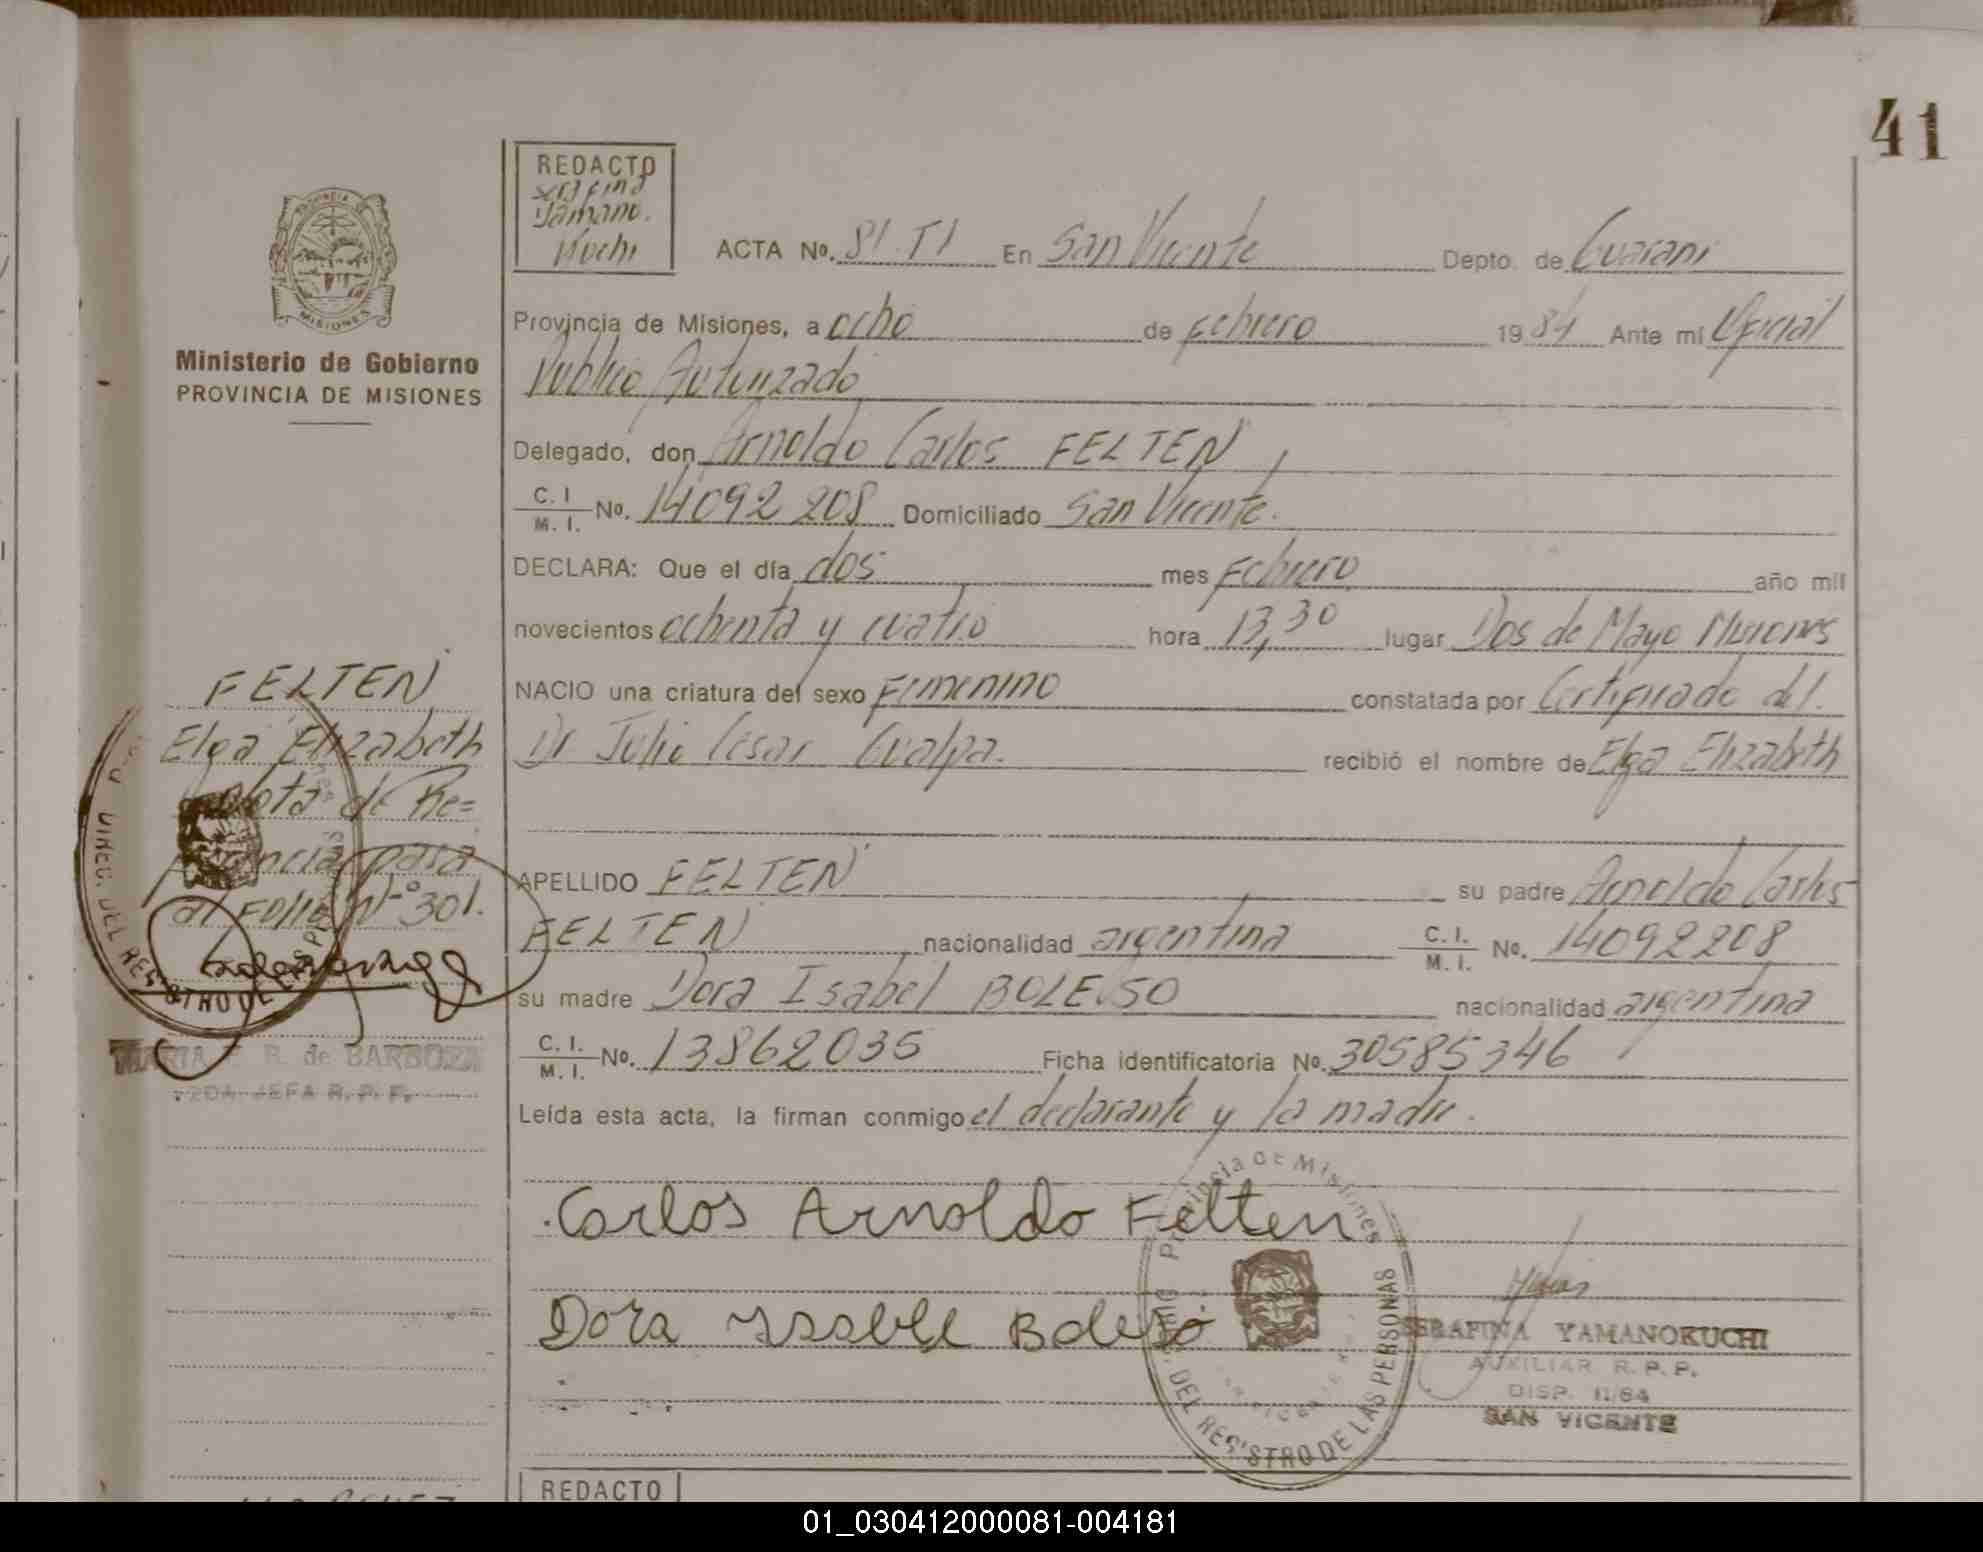 41
REDACTO
Serafina
Yamano.
Kuchi
ACTA No. 81.TI En San Vicente Depto. de Guarani
Provincia de Misiones, a ocho de Febrero 1984 Ante mí Oficial
Publico Autorizado
Delegado, don Arnoldo Carlos FELTEN
C. I. M. I. No. 14092 208 Domiciliado San Vicente.
DECLARA: Que el día dos mes Febrero año mil
novecientos ochenta y cuatro hora 13,30 lugar Dos de Mayo Misiones
NACIO una criatura del sexo Femenino constatada por Certificado del.
Dr Julio Cesar Gualpa. recibió el nombre de Elga Elizabeth
APELLIDO FELTEN su padre Arnoldo Carlos
FELTEN nacionalidad argentina C. I. M. I. No. 14092208
su madre Dora Isabel nacionalidad argentina
C. I. M. I. No. 13862035 Ficha identificatoria No. 30585346
Leída esta acta, la firman conmigo el declarante y la madre.
Carlos Arnoldo Felten
Dora
Provincia DE Misiones
DIREC. DEL REGISTRO DE LAS PERSONAS
SERAFINA YAMANOKUCHI
AUXILIAR R. P. P.
DISP. 11/84
SAN VICENTE
PROVINCIA DE
MISIONES
Ministerio de Gobierno
PROVINCIA DE MISIONES
FELTEN
Elga Elizabeth
Nota de Re=
ferencia pasa
al Folio Nº 301.
DIREC. DEL REGISTRO DE LAS PERSONAS
MARIA R. de BARBOZA
2DA JEFA R. P. P.
REDACTO
01_030412000081-004181